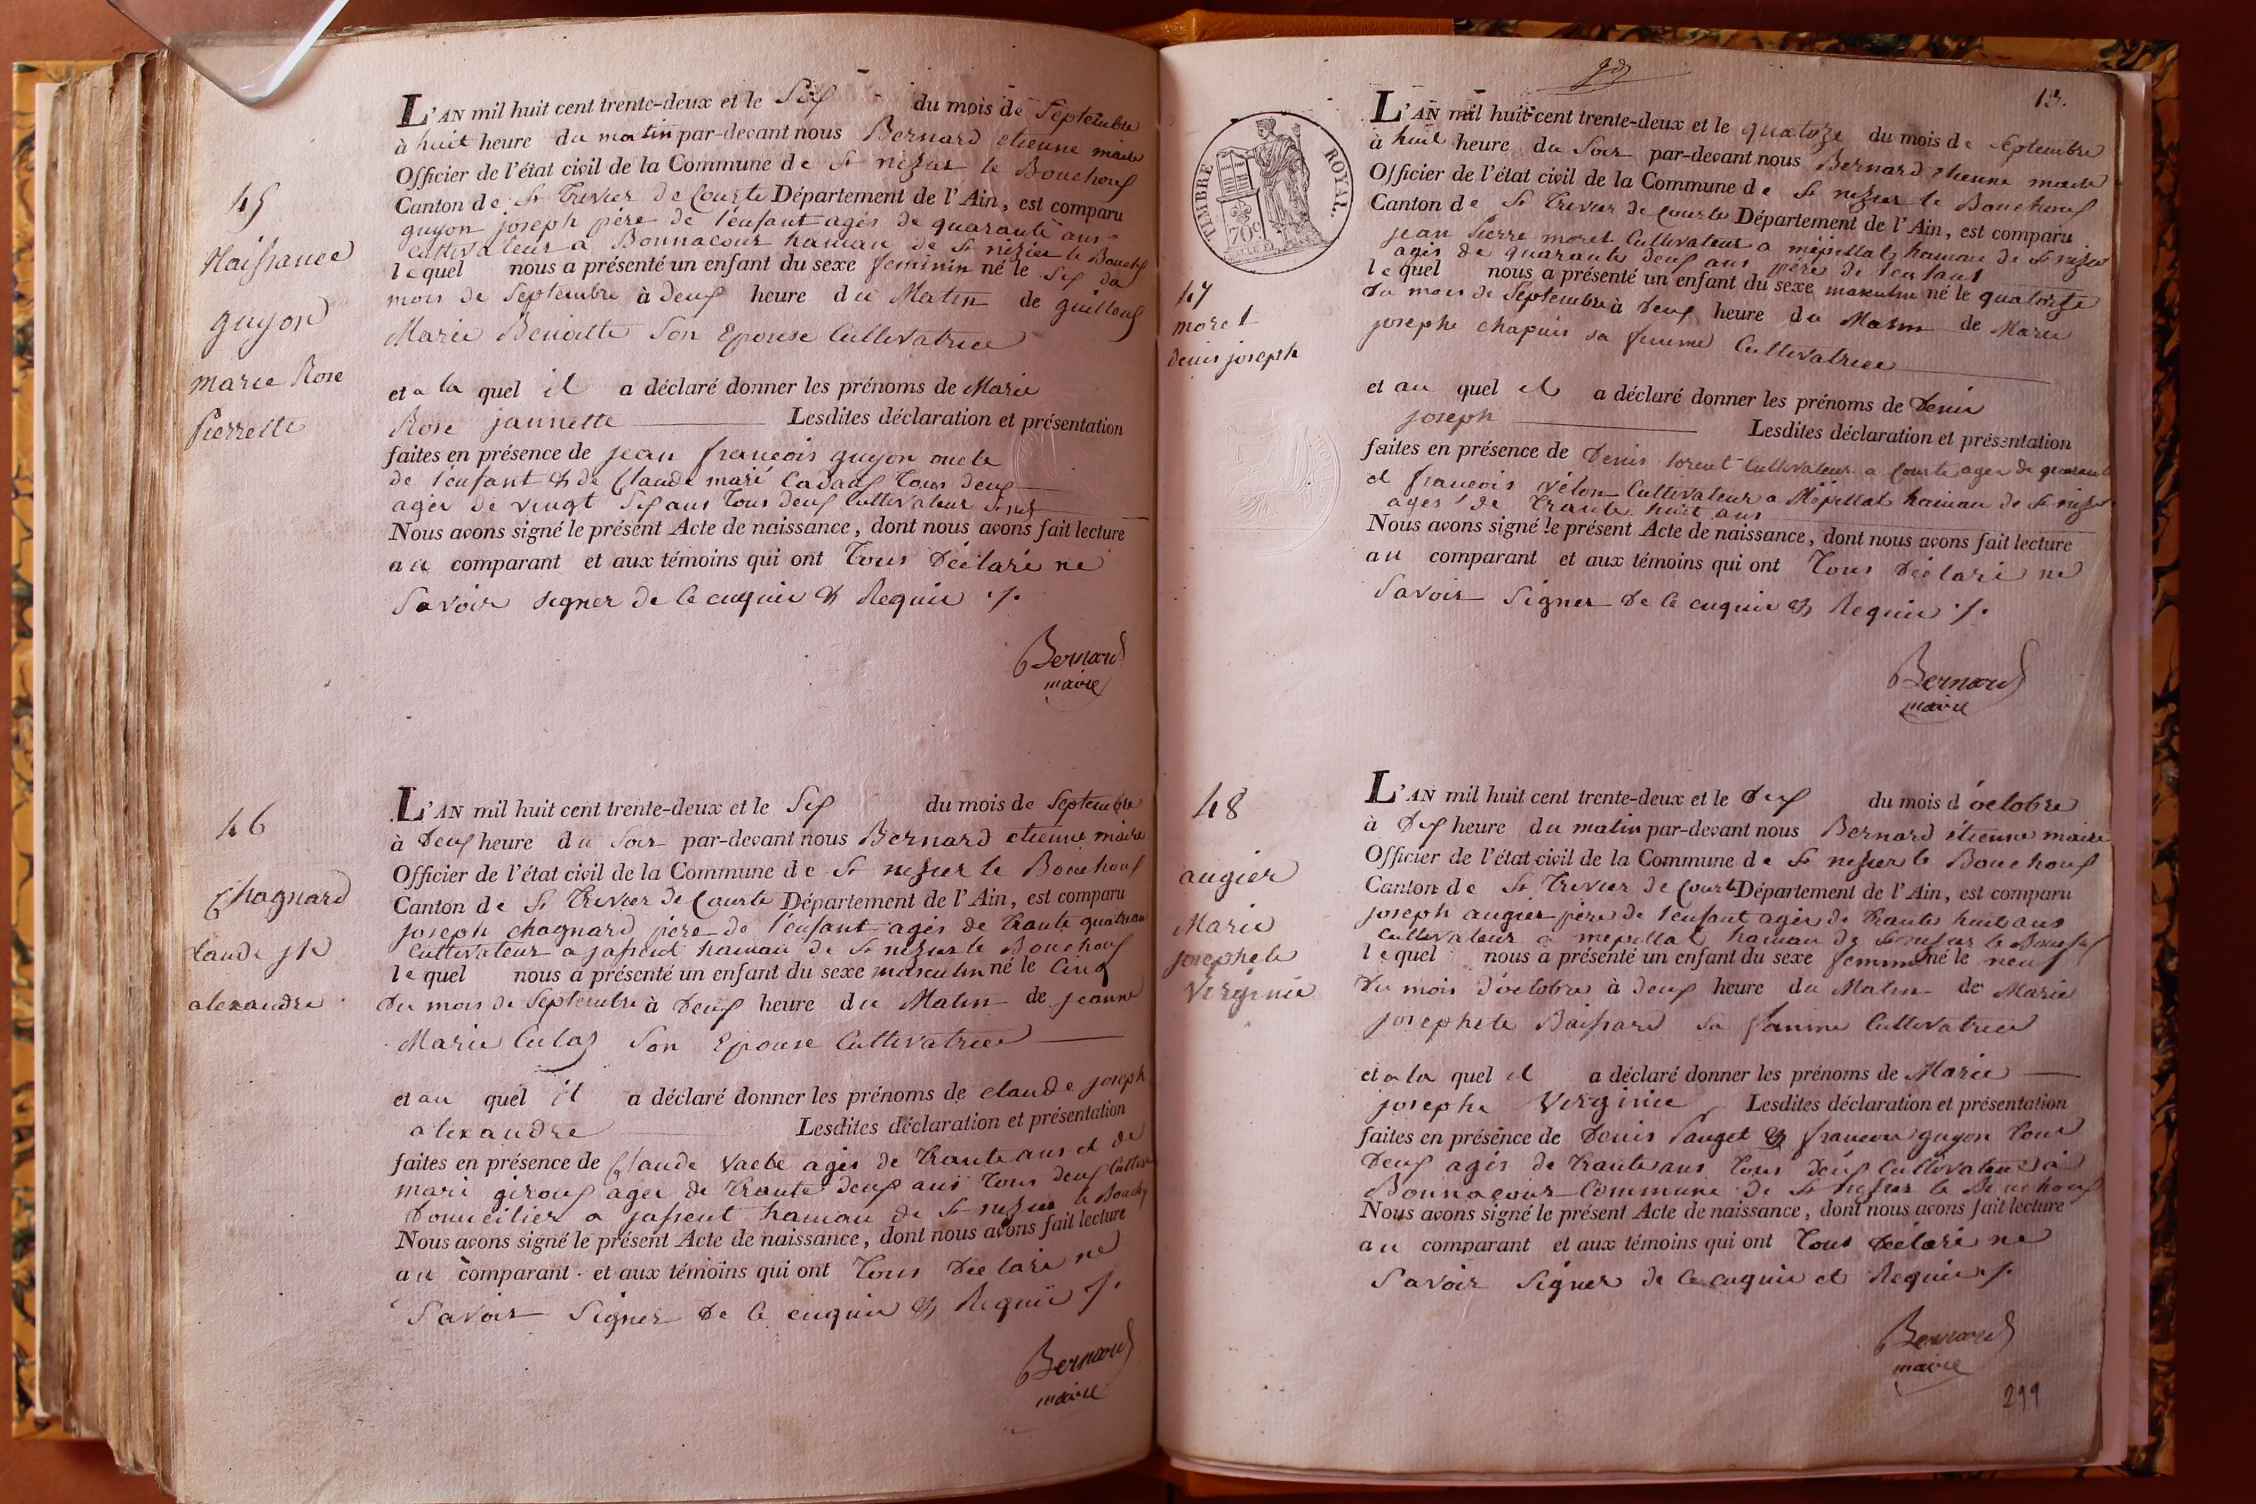 45
Naissance
guyon
marie Rose
pierrette
L'AN mil huit cent trente-deux et le Six du mois de Septembre
à huit heure du matin par-devant nous Bernard etienne maire
Officier de l'état civil de la Commune de St nizier le Bouchoux
Canton de St Trivier de Courte Département de l'Ain, est comparu
guyon joseph père de l'enfant agés de quarante ans
Cultivateur a Bonnacour hamau de St nizier le Bouch
lequel nous a présenté un enfant du sexe feminin né le Six du
mois de Septembre à deux heure du Matin de guilloux
Marie Benoitte Son Epouse Cultivatrice
et a la quel il a déclaré donner les prénoms de Marie
Rose jannette Lesdites déclaration et présentation
faites en présence de jean francois guyon oncle
de l'enfant & de Claude marie Tous deux
agés de vingt Six ans Tous deux Cultivateur
Nous avons signé le présent Acte de naissance, dont nous avons fait lecture
au comparant et aux témoins qui ont Tous Déclaré ne
Savoir signer de ce enquie & Requie ./.
Bernard
maire
46
Chagnard
laude jh
alexandre
L'AN mil huit cent trente-deux et le Six du mois de Septembre
à Deux heure du Soir par-devant nous Bernard etienne maire
Officier de l'état civil de la Commune de St nizier le Bouchoux
Canton de St Trivier de Courte Département de l'Ain, est comparu
joseph chagnard père de l'enfant agés de trante quatre ans
Cultivateur a jassent hamau de St nizier le Bouchoux
lequel nous a présenté un enfant du sexe masculin né le Cinq
du mois de Septembre à Deux heure du Matin de jeanne
Marie Culas Son Epouse Cultivatrice
et au quel il a déclaré donner les prénoms de claude joseph
alexandre Lesdites déclaration et présentation
faites en présence de Claude vacle agés de trante ans et de
mari giroux agée de trante deux ans Tous deux Cultiv
Domicilier a jassent hamau de St nizier le Bouch
Nous avons signé le présent Acte de naissance, dont nous avons fait lecture
au comparant et aux témoins qui ont Tous Déclaré ne
Savoir Signer De ce enquie & Requie ./.
Bernard
maire
13.
TIMBRE ROYAL.
70c
47
moret
denis joseph
L'AN mil huit cent trente-deux et le quatoze du mois de Septembre
à huit heure du Soir par-devant nous Bernard etienne maire
Officier de l'état civil de la Commune de St nizier le Bouchoux
Canton de St Trivier de Courte Département de l'Ain, est comparu
jean pierre moret Cultivateur a mépillat hamau de St nizier
agés de quarante deux ans père de l'enfant
lequel nous a présenté un enfant du sexe masculin né le quatorze
du mois de Septembre à Deux heure du Matin de Marie
josephe chapuis sa femme Cultivatrice
et au quel il a déclaré donner les prénoms de Denis
joseph Lesdites déclaration et présentation
faites en présence de Denis Cultivateur a Courte agée de quarante
et francois vélon Cultivateur a Mépillat hamau de St nizier
agés de trante huit ans
Nous avons signé le présent Acte de naissance, dont nous avons fait lecture
au comparant et aux témoins qui ont Tous Déclaré ne
Savoir Signer De ce enquie & Requie ./.
Bernard
maire
48
augier
Marie
josephete
Virginie
L'AN mil huit cent trente-deux et le Dix du mois d'octobre
à Dix heure du matin par-devant nous Bernard etienne maire
Officier de l'état civil de la Commune de St nizier le Bouchoux
Canton de St Trivier de Courte Département de l'Ain, est comparu
joseph augier père de l'enfant agée de trante huit ans
Cultivateur a mépillat hamau de St nizier le Bouchoux
lequel nous a présenté un enfant du sexe feminin né le neuf
Du mois d'octobre à deux heure du Matin de Marie
josephete Baissard sa famme Cultivatrice
et a la quel il a déclaré donner les prénoms de Marie
josephe Virginie Lesdites déclaration et présentation
faites en présence de Denis Pauget & francois guyon Tous
Deux agés de trante ans Tous Deux Cultivateur a
Bonnacour Commune de St nizier le Bouchoux
Nous avons signé le présent Acte de naissance, dont nous avons fait lecture
au comparant et aux témoins qui ont Tous Déclaré ne
Savoir Signer de ce enquie et Requie ./.
Bernard
maire
299